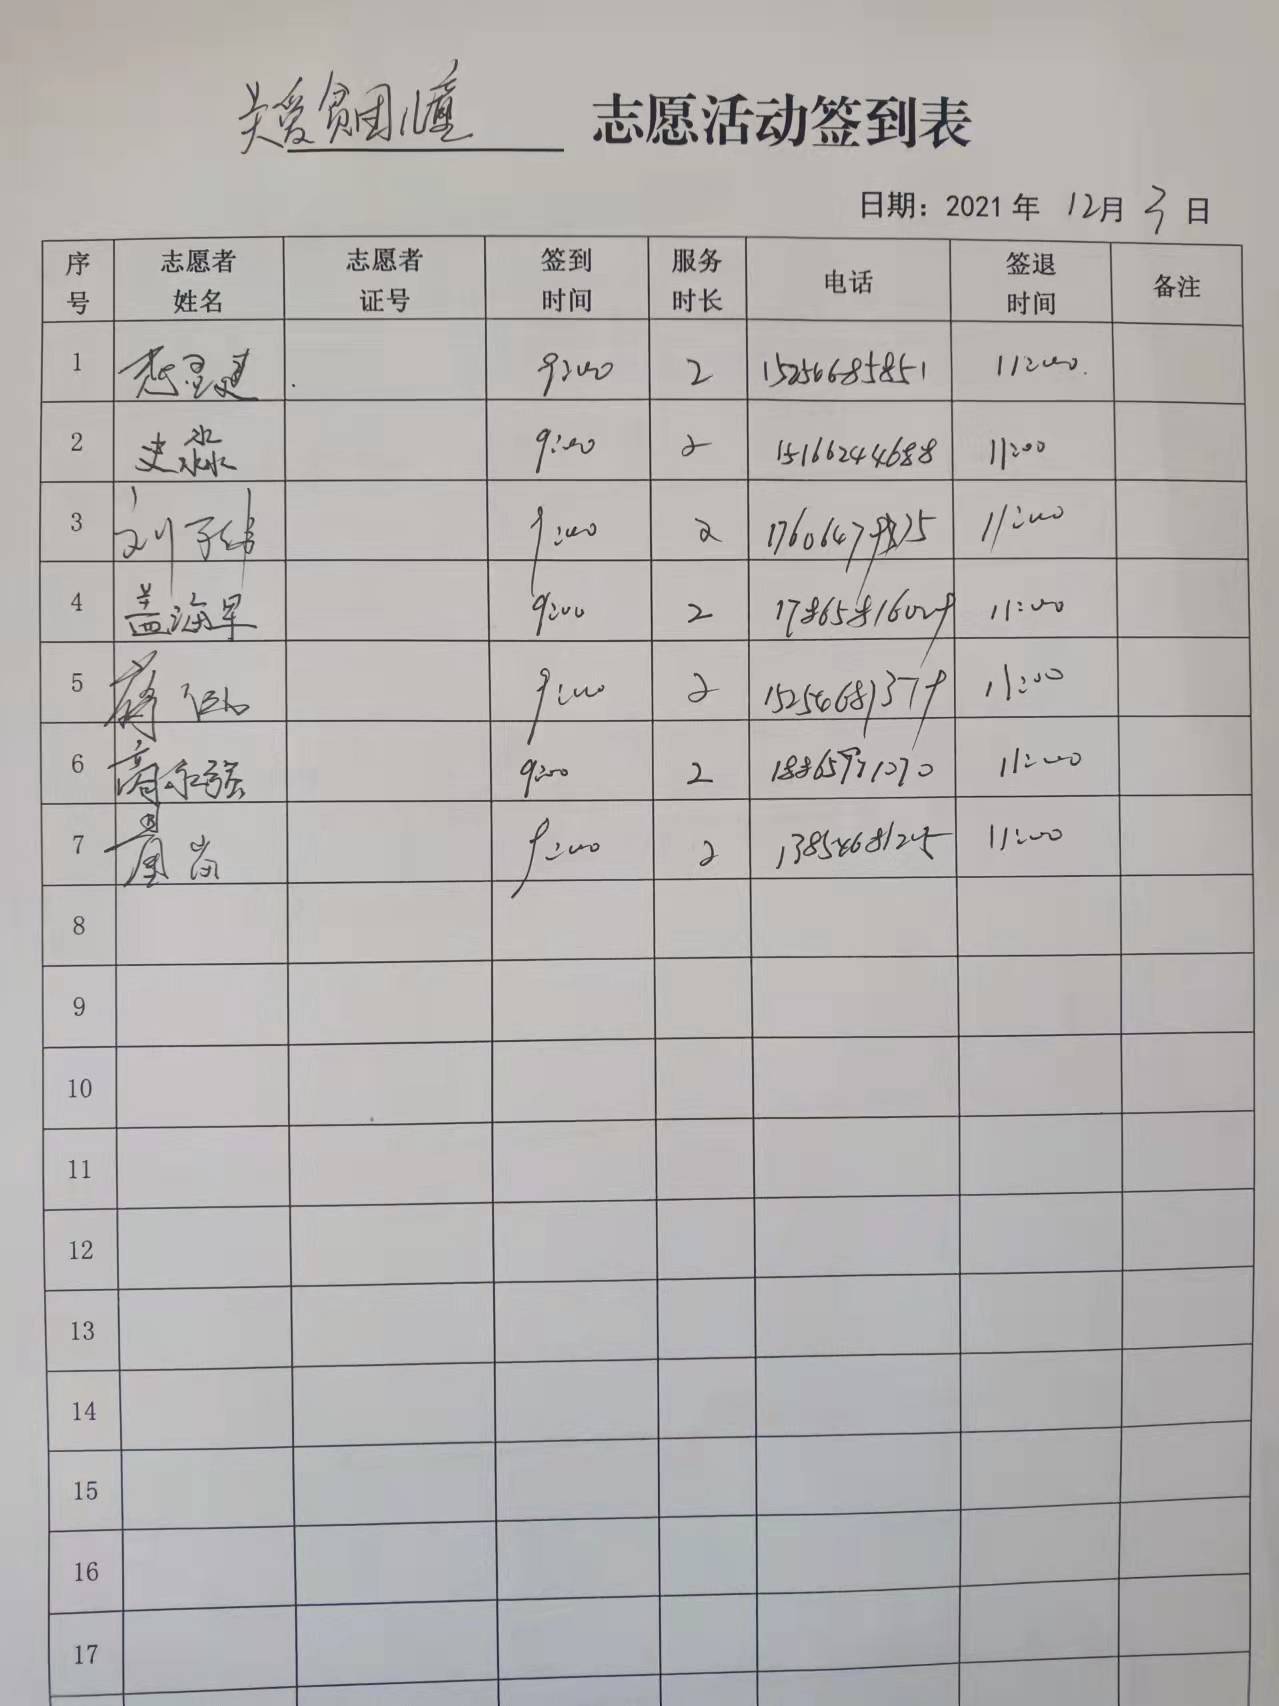 关爱贫困儿童 志愿活动签到表
日期：2021年 12月 3日
序号 志愿者姓名 志愿者证号 签到时间 服务时长 电话 签退时间 备注
1 9:00 2 15254685851 11:00
2 史淼 9:00 2 15166244688 11:00
3 刘子纬 9:00 2 11:00
4 盖海军 9:00 2 11:00
5 蒋 9:00 2 11:00
6 高永强 9:00 2 11:00
7 9:00 2 11:00
8
9
10
11
12
13
14
15
16
17